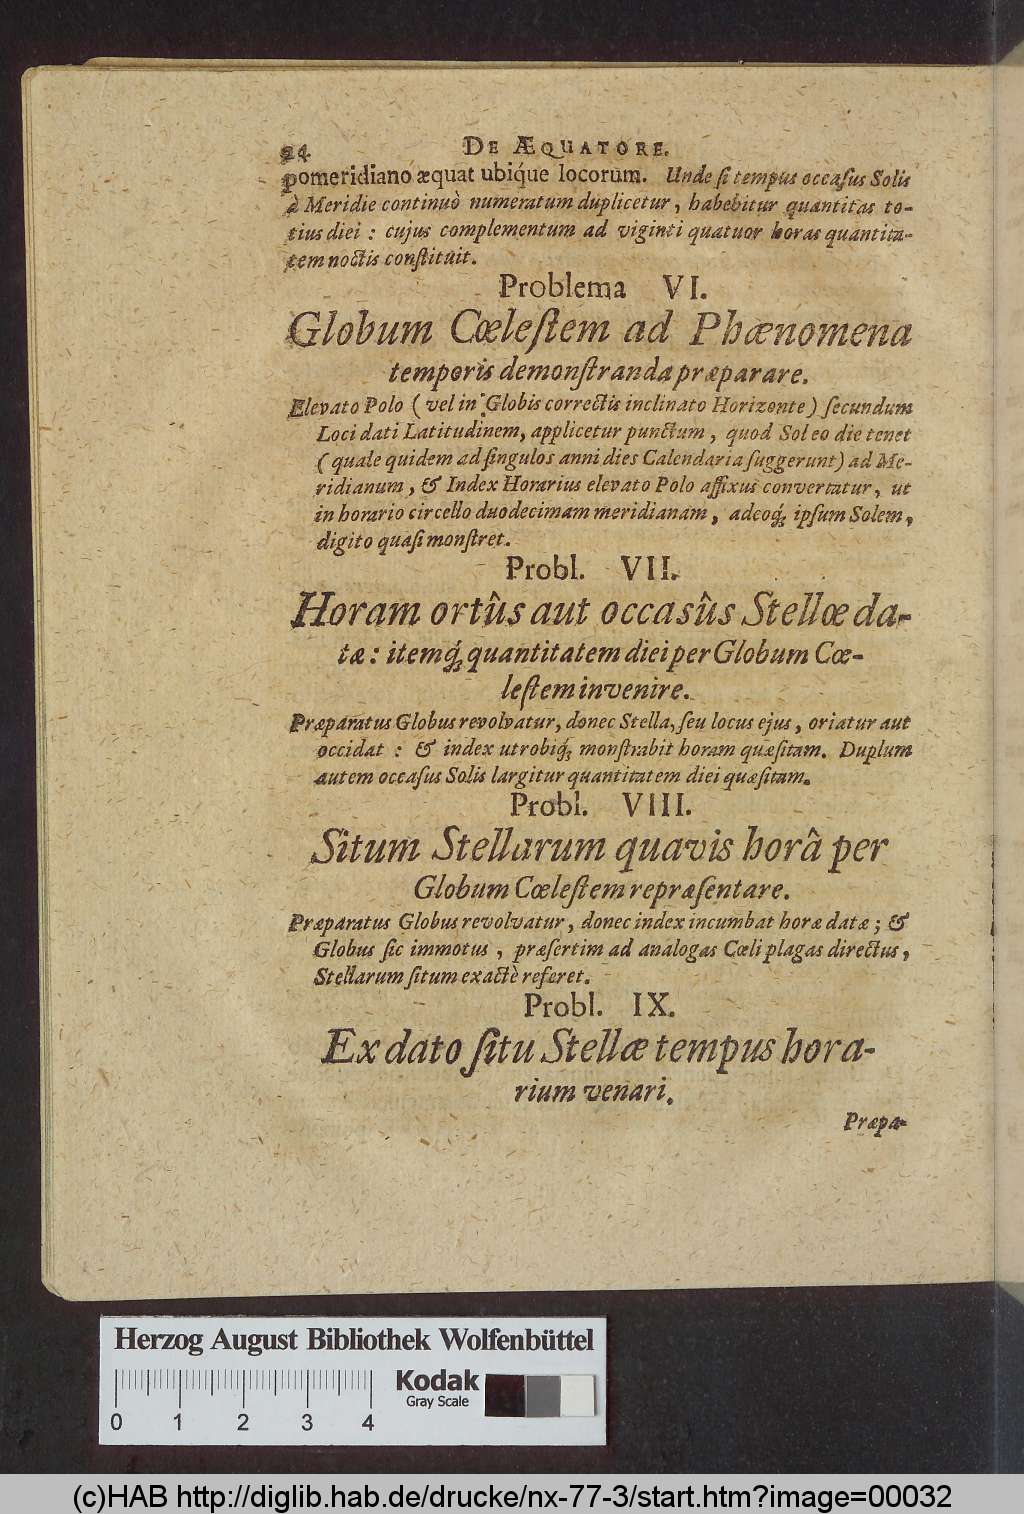 24 DE ÆQUATORE.
pomeridiano æquat ubiq́ue locorum. Unde ſi tempus occaſus Solis
à Meridie continuò numeratum duplicetur, habebitur quantitas to-
tius diei : cujus complementum ad viginti quatuor horas quantita-
tem noctis conſtituit.
Problema VI.
Globum Cœleſtem ad Phænomena
temporis demonſtranda præparare.
Elevato Polo ( vel in Globis correctis inclinato Horizonte ) ſecundum
Loci dati Latitudinem, applicetur punctum, quod Sol eo die tenet
( quale quidem ad ſingulos anni dies Calendaria ſuggerunt) ad Me-
ridianum, & Index Horarius elevato Polo affixus convertatur, ut
in horario circello duodecimam meridianam, adeoq́; ipſum Solem,
digito quaſi monſtret.
Probl. VII.
Horam ortûs aut occasûs Stellœ da-
tæ : itemq́; quantitatem diei per Globum Cœ-
leſtem invenire.
Præparatus Globus revolvatur, donec Stella, ſeu locus ejus, oriatur aut
occidat : & index utrobiq́; monſtrabit horam quæſitam. Duplum
autem occaſus Solis largitur quantitatem diei quæſitam.
Probl. VIII.
Situm Stellarum quavis horâ per
Globum Cœleſtem repræſentare.
Præparatus Globus revolvatur, donec index incumbat horæ datæ ; &
Globus ſic immotus, præſertim ad analogas Cœli plagas directus,
Stellarum ſitum exactè referet.
Probl. IX.
Ex dato ſitu Stellæ tempus hora-
rium venari.
Præpa-
Herzog August Bibliothek Wolfenbüttel
Kodak
Gray Scale
0 1 2 3 4
(c)HAB http://diglib.hab.de/drucke/nx-77-3/start.htm?image=00032